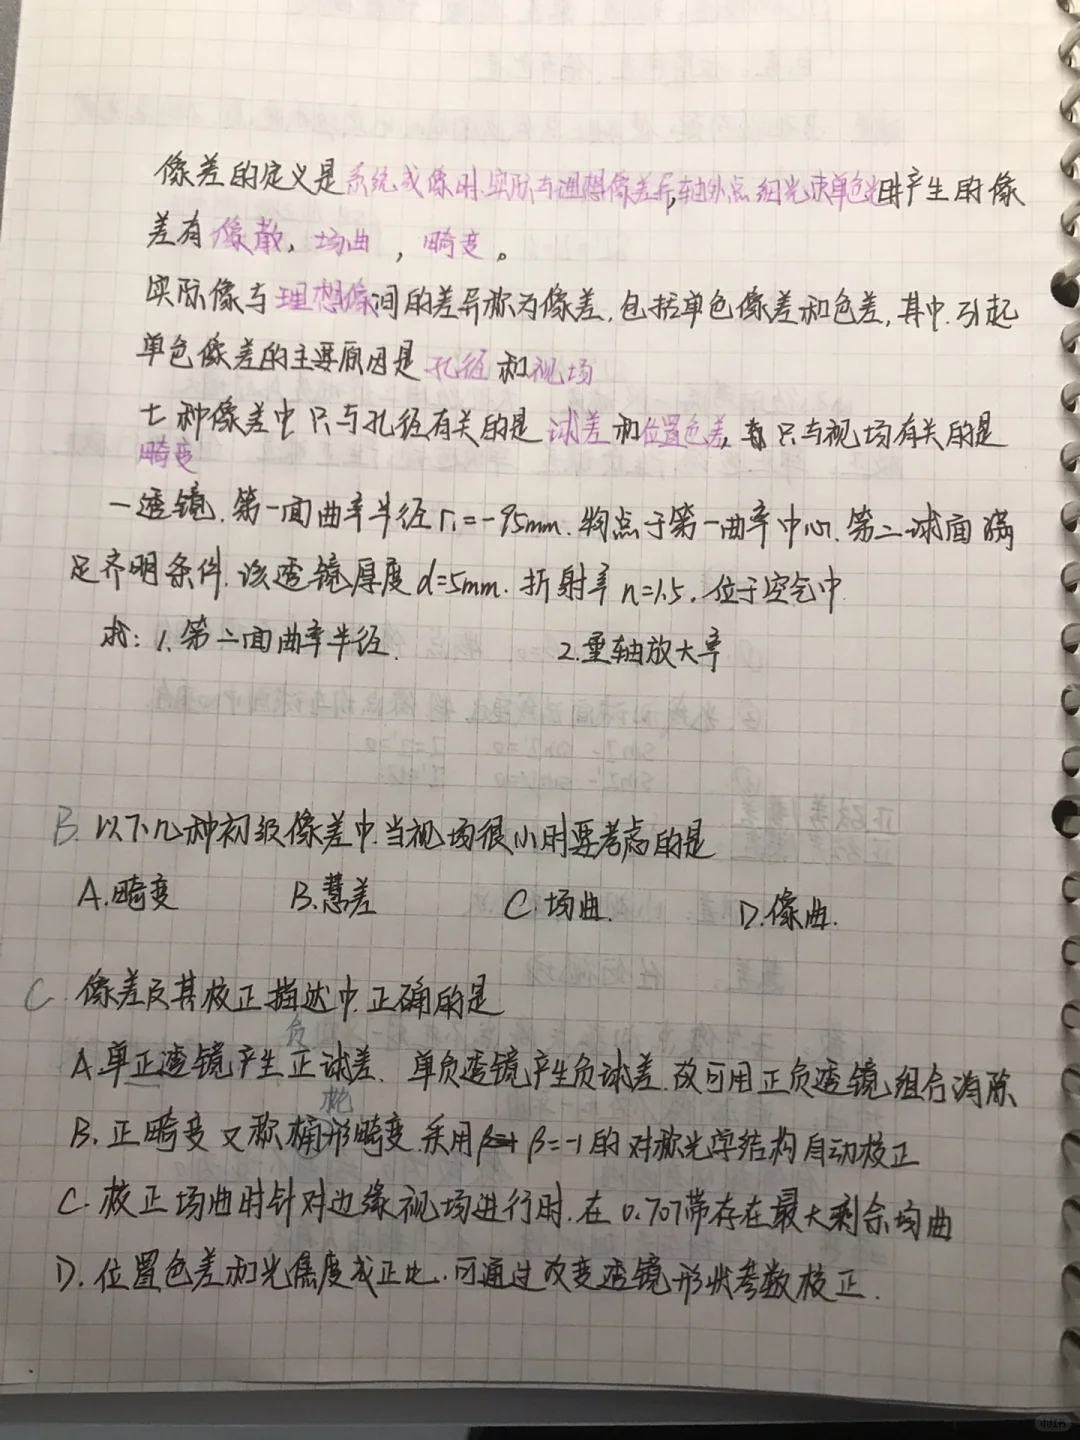 像差的定义是系统成像时实际与理想像差异,轴外点细光束单色光时产生的像
差有像散，场曲，畸变。
实际像与理想像间的差异称为像差,包括单色像差和色差,其中.引起
单色像差的主要原因是孔径和视场
七种像差中只与孔径有关的是球差和位置色差,只与视场有关的是
畸变
一透镜.第一面曲率半径r₁=-95mm.物点于第一曲率中心.第二球面满
足齐明条件.该透镜厚度d=5mm.折射率n=1.5.位于空气中
求:1.第二面曲率半径. 2.垂轴放大率
B.以下几种初级像差中.当视场很小时要考虑的是
A.畸变 B.慧差 C.场曲. D.像曲.
C.像差及其校正描述中.正确的是
负
A.单正透镜产生正球差、单负透镜产生负球差.故可用正负透镜组合消除
枕
B.正畸变又称桶形畸变.采用β=-1的对称光学结构自动校正
C.校正场曲时针对边缘视场进行时.在0.707带存在最大剩余场曲
D.位置色差和光焦度成正比.可通过改变透镜形状参数校正.